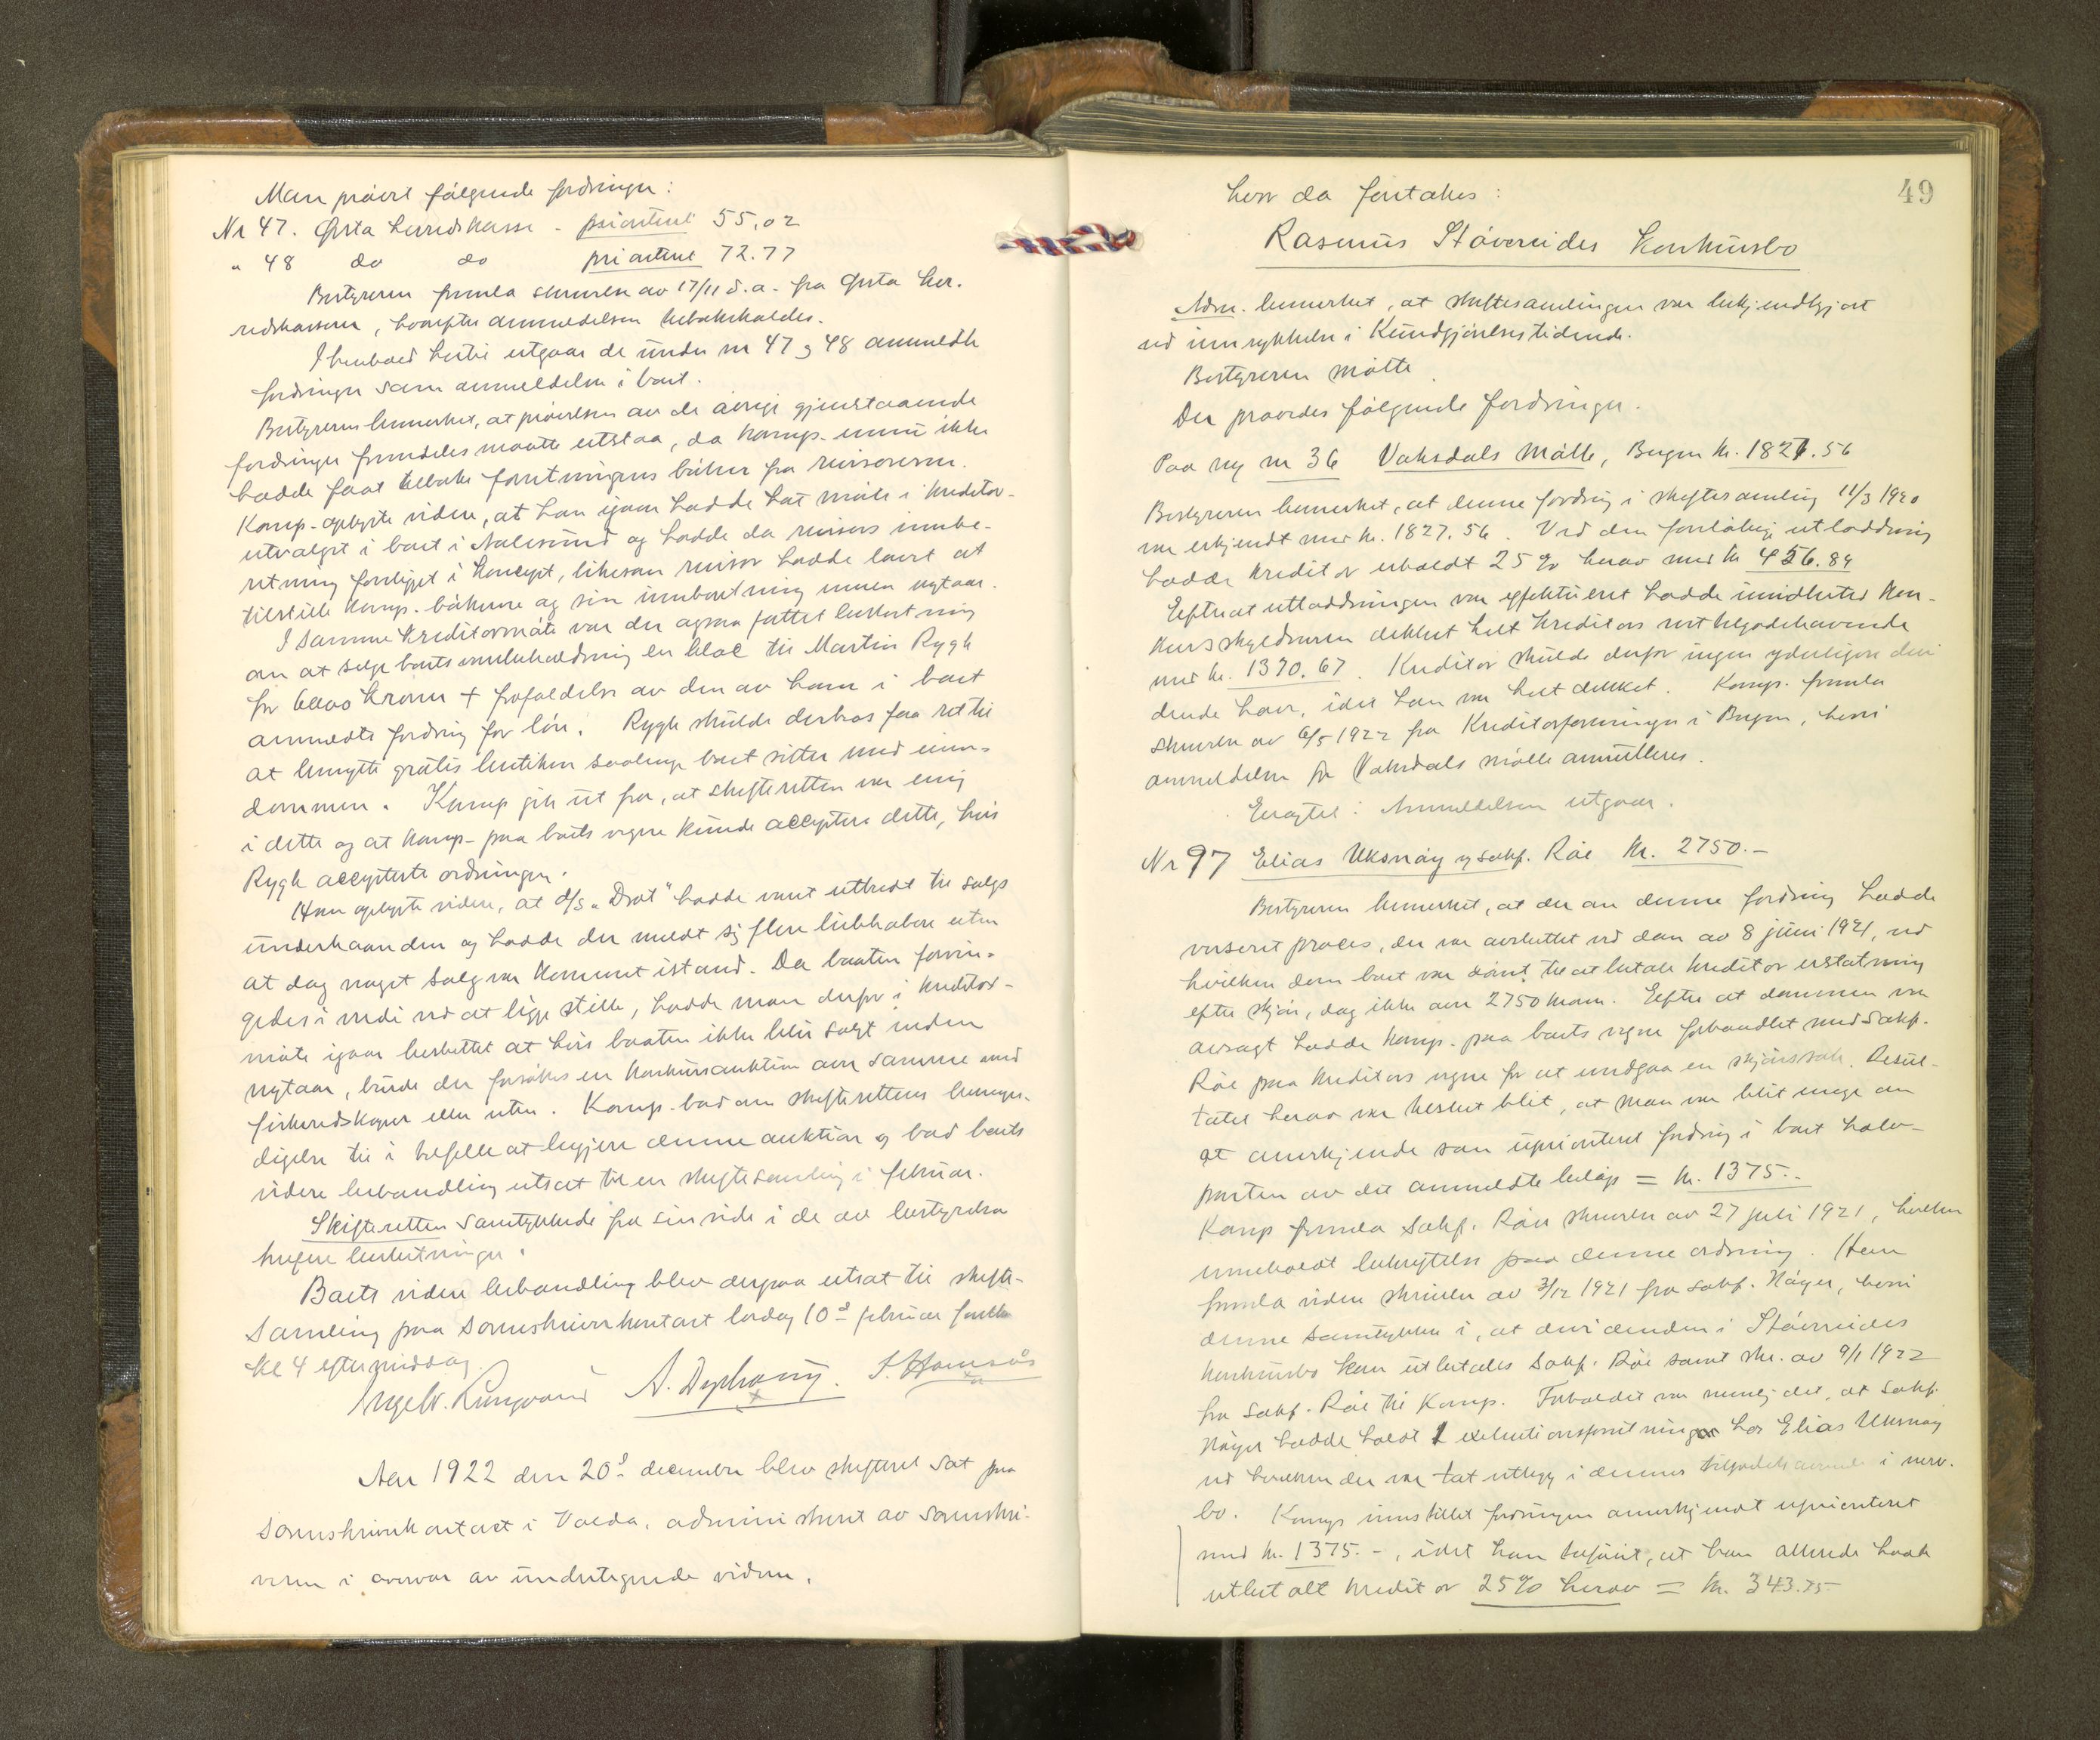 Man prøvet følgende fordringer:
Nr 47. Ørsta herredskasse - prioritert 55,02
" 48 do do prioritert 72.77
Bestyreren fremla skrivelse av 17/11 d.a. fra Ørsta her-
redskasserer, hvorefter anmeldelsen tilbakekaldes.
I henhold hertil utgaar de under nr 47 og 48 anmeldte
fordringer som anmeldelse i boet.
Bestyreren bemerket, at prøvelsen av de øvrige gjenstaaende
fordringer fremdeles maatte utstaa, da komp. ennu ikke
hadde faat tilbake forretningens bøker fra revisoren.
Komp. oplyste videre, at han igaar hadde hat møte i kreditor-
utvalget i boet i Aalesund og hadde da revisors innbe-
retning foreligget i koncept, likesom revisor hadde lovet at
tilstille komp. bøkerne og sin innberetning innen nytaar.
I samme kreditormøte var der ogsaa fattet beslutning
om at selge boets innbeholdning en bloc til Martin Rygh
for kroner + frafaldelse av den av ham i boet
anmeldte fordring for løn. Rygh skulde derhos faa ret til
at benytte gratis butiken saalenge boet sitter med eien-
dommen. Komp gik ut fra, at skifteretten var enig
i dette og at komp. paa boets vegne kunde acceptere dette, hvis
Rygh accepterte ordningen.
Han oplyste videre, at d/s "Drot" hadde været utbudt til salgs
underhaanden og hadde der meldt sig flere liebhabere uten
at dog noget salg var kommet istand. Da baaten forrin-
gedes i verdi ved at ligge stille, hadde man derfor i kreditor-
møte igaar besluttet at hvis baaten ikke blir solgt inden
nytaar, burde der forsøkes en konkursauktion over samme med
fiskeredskaper eller uten. Komp. bad om skifterettens bemyn-
digelse til i tilfelle at begjære denne auktion og bad boets
videre behandling utsat til en skiftesamling i februar.
Skifteretten samtykkede fra sin side i de av bestyrelsen
trufne beslutninger.
Boets videre behandling blev derpaa utsat til skifte-
samling paa sorenskriverkontoret lørdag 10de februar førstk.
kl 4 eftermiddag.
Aar 1922 den 20de december blev skifteret sat paa
sorenskriverkontoret i Volda, administrert av sorenskri-
veren i overvær av undertegnede vidner.
49
hvor da foretakes:
Rasmus Støvereides Konkursbo
Adm. bemerket, at skiftesamlingen var bekjendtgjort
ved innrykkelse i Kundgjørelsestidende.
Bestyreren møtte.
Der prøvedes følgende fordringer.
Paa ny nr 36 Vaksdals Mølle, Bergen kr. 1827.56
Bestyreren bemerket, at denne fordring i skiftesamling 11/3 1920
var erkjendt med kr. 1827.56. Ved den foreløbige utloddning
hadde kreditor erholdt 25 % herav med kr 456.84
Efterat utloddningen var effektueret hadde imidlertid kon-
kursskyldneren dekket helt kreditors resttilgodehavende
med kr. 1370.67. Kreditor skulde derfor ingen yderligere divi-
dende have, idet han var helt dekket. Komp. fremla
skrivelse av 6/5 1922 fra Kreditorforeningen i Bergen, hvori
anmeldelsen for Vaksdals mølle annulleres.
Eragtet: Anmeldelsen utgaar.
Nr 97 Elias Uksnøy v sakf. Röe kr. 2750.-
Bestyreren bemerket, at der om denne fordring hadde
verseret proces, der var avsluttet ved dom av 8 juni 1921, ved
hvilken dom boet var dømt til at betale kreditor erstatning
efter skjøn, dog ikke over 2750 kroner. Efter at dommen var
avsagt hadde komp. paa boets vegne forhandlet med sakf.
Röe paa kreditors vegne for at undgaa en skjønssak. Resul-
tatet herav var tilslut blit, at man var blit enige om
at anerkjende som uprioritert fordring i boet halv-
parten av det anmeldte beløp = kr. 1375.-
Komp fremla sakf. Röes skrivelse av 27 juli 1921, hvilken
inneholdt bekræftelse paa denne ordning. Han
fremla videre skrivelse av 3/12 1921 fra sakf. Höyer, hvori
denne samtykker i, at dividenden i Støvereides
konkursbo kan utbetales sakf. Röe samt skr. av 9/1 1922
fra sakf. Röe til Komp. Forholdet var nemlig det, at sakf.
Höyer hadde holdt 1 exekutionsforretning hos Elias Uksnøy
ved hvilken der var tat utlegg i dennes tilgodehavende i nærv.
bo. Komp innstillet fordringen anerkjendt uprioritert
med kr. 1375.-, idet han tilføiet, at han allerede hadde
utbetalt kreditor 25% herav = kr. 343.75